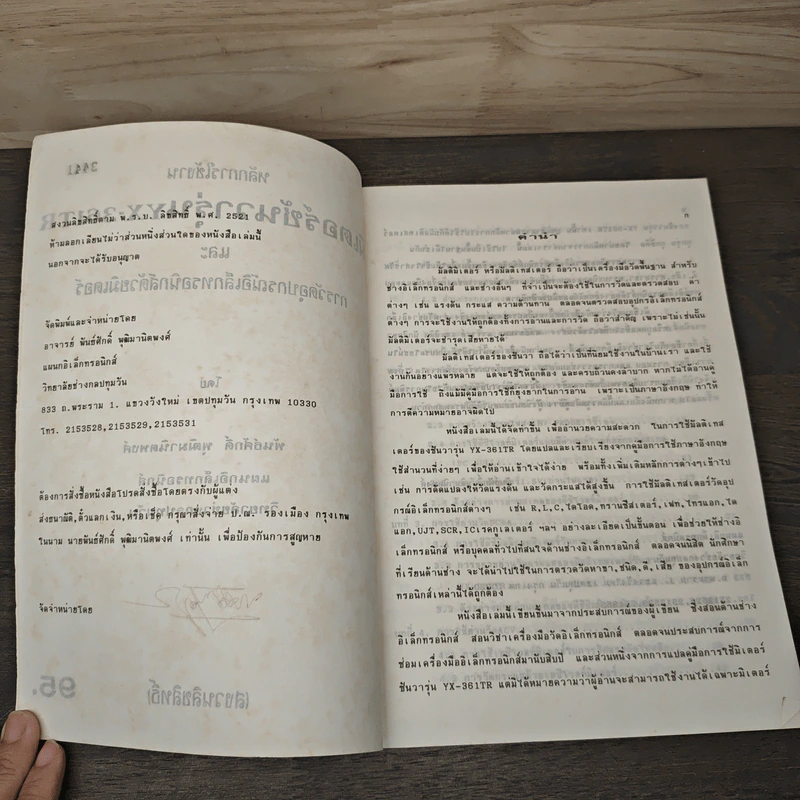 สงวนลิขสิทธิ์ตาม พ.ร.บ. ลิขสิทธิ์ พ.ศ. 2521
ห้ามลอกเลียนไม่ว่าส่วนหนึ่งส่วนใดของหนังสือเล่มนี้
นอกจากจะได้รับอนุญาต
จัดพิมพ์และจำหน่ายโดย
อาจารย์ พันธ์ศักดิ์ พุฒิมานิตพงศ์
แผนกอิเล็กทรอนิกส์
วิทยาลัยช่างกลปทุมวัน
833 ถ.พระราม 1. แขวงวังใหม่ เขตปทุมวัน กรุงเทพ 10330
โทร. 2153528,2153529,2153531
ต้องการสั่งซื้อหนังสือโปรดสั่งซื้อโดยตรงกับผู้แต่ง
ส่งธนาณัติ,ตั๋วแลกเงิน,หรือเช็ค กรุณาสั่งจ่าย ป.ณ. รองเมือง กรุงเทพ
ในนาม นายพันธ์ศักดิ์ พุฒิมานิตพงศ์ เท่านั้น เพื่อป้องกันการสูญหาย
จัดจำหน่ายโดย
ก
คำนำ
มัลติมิเตอร์ หรือมัลติเทสเตอร์ ถือว่าเป็นเครื่องมือวัดพื้นฐาน สำหรับ
ช่างอิเล็กทรอนิกส์ และช่างอื่นๆ ที่จำเป็นจะต้องใช้ในการวัดและตรวจสอบ ค่า
ต่างๆ เช่น แรงดัน กระแส ความต้านทาน ตลอดจนตรวจสอบอุปกรณ์อิเล็กทรอนิกส์
ต่างๆ การจะใช้งานให้ถูกต้องทั้งการอ่านและการวัด ถือว่าสำคัญ เพราะไม่เช่นนั้น
มัลติมิเตอร์จะชำรุดเสียหายได้
มัลติเทสเตอร์ของซันวา ถือได้ว่าเป็นที่นิยมใช้งานในบ้านเรา และใช้
งานกันอย่างแพร่หลาย แต่จะใช้ให้ถูกต้อง และครบถ้วนคงลำบาก หากไม่ได้อ่านคู่
มือการใช้ ถึงแม้มีคู่มือการใช้ก็ยุ่งยากในการอ่าน เพราะเป็นภาษาอังกฤษ ทำให้
การตีความหมายอาจผิดไป
หนังสือเล่มนี้ได้จัดทำขึ้น เพื่ออำนวยความสะดวก ในการใช้มัลติเทส
เตอร์ของซันวารุ่น YX-361TR โดยแปลและเรียบเรียงจากคู่มือการใช้ภาษาอังกฤษ
ใช้สำนวนที่ง่ายๆ เพื่อให้อ่านเข้าใจได้ง่าย พร้อมทั้งเพิ่มเติมหลักการต่างๆเข้าไป
เช่น การดัดแปลงให้วัดแรงดัน และวัดกระแสได้สูงขึ้น การใช้มัลติเตอร์วัดอุป
กรณ์อิเล็กทรอนิกส์ต่างๆ เช่น R,L,C,ไดโอด,ทรานซีสเตอร์,เฟท,ไทรแอก,ได
แอก,UJT,SCR,ICเรคกูเลเตอร์ ฯลฯ อย่างละเอียดเป็นขั้นตอน เพื่อช่วยให้ช่างอิ
เล็กทรอนิกส์ หรือบุคคลทั่วไปที่สนใจด้านช่างอิเล็กทรอนิกส์ ตลอดจนนิสิต นักศึกษา
ที่เรียนด้านช่าง จะได้นำไปใช้ในการตรวจวัดหาขา,ชนิด,ดี,เสีย ของอุปกรณ์อิเล็ก
ทรอนิกส์เหล่านี้ได้ถูกต้อง
หนังสือเล่มนี้เขียนขึ้นมาจากประสบการณ์ของผู้เขียน ซึ่งสอนด้านช่าง
อิเล็กทรอนิกส์ สอนวิชาเครื่องมือวัดอิเล็กทรอนิกส์ ตลอดจนประสบการณ์จากการ
ซ่อมเครื่องมืออิเล็กทรอนิกส์มานับสิบปี และส่วนหนึ่งจากการแปลคู่มือการใช้มิเตอร์
ซันวารุ่น YX-361TR แต่มิได้หมายความว่าผู้อ่านจะสามารถใช้งานได้เฉพาะมิเตอร์